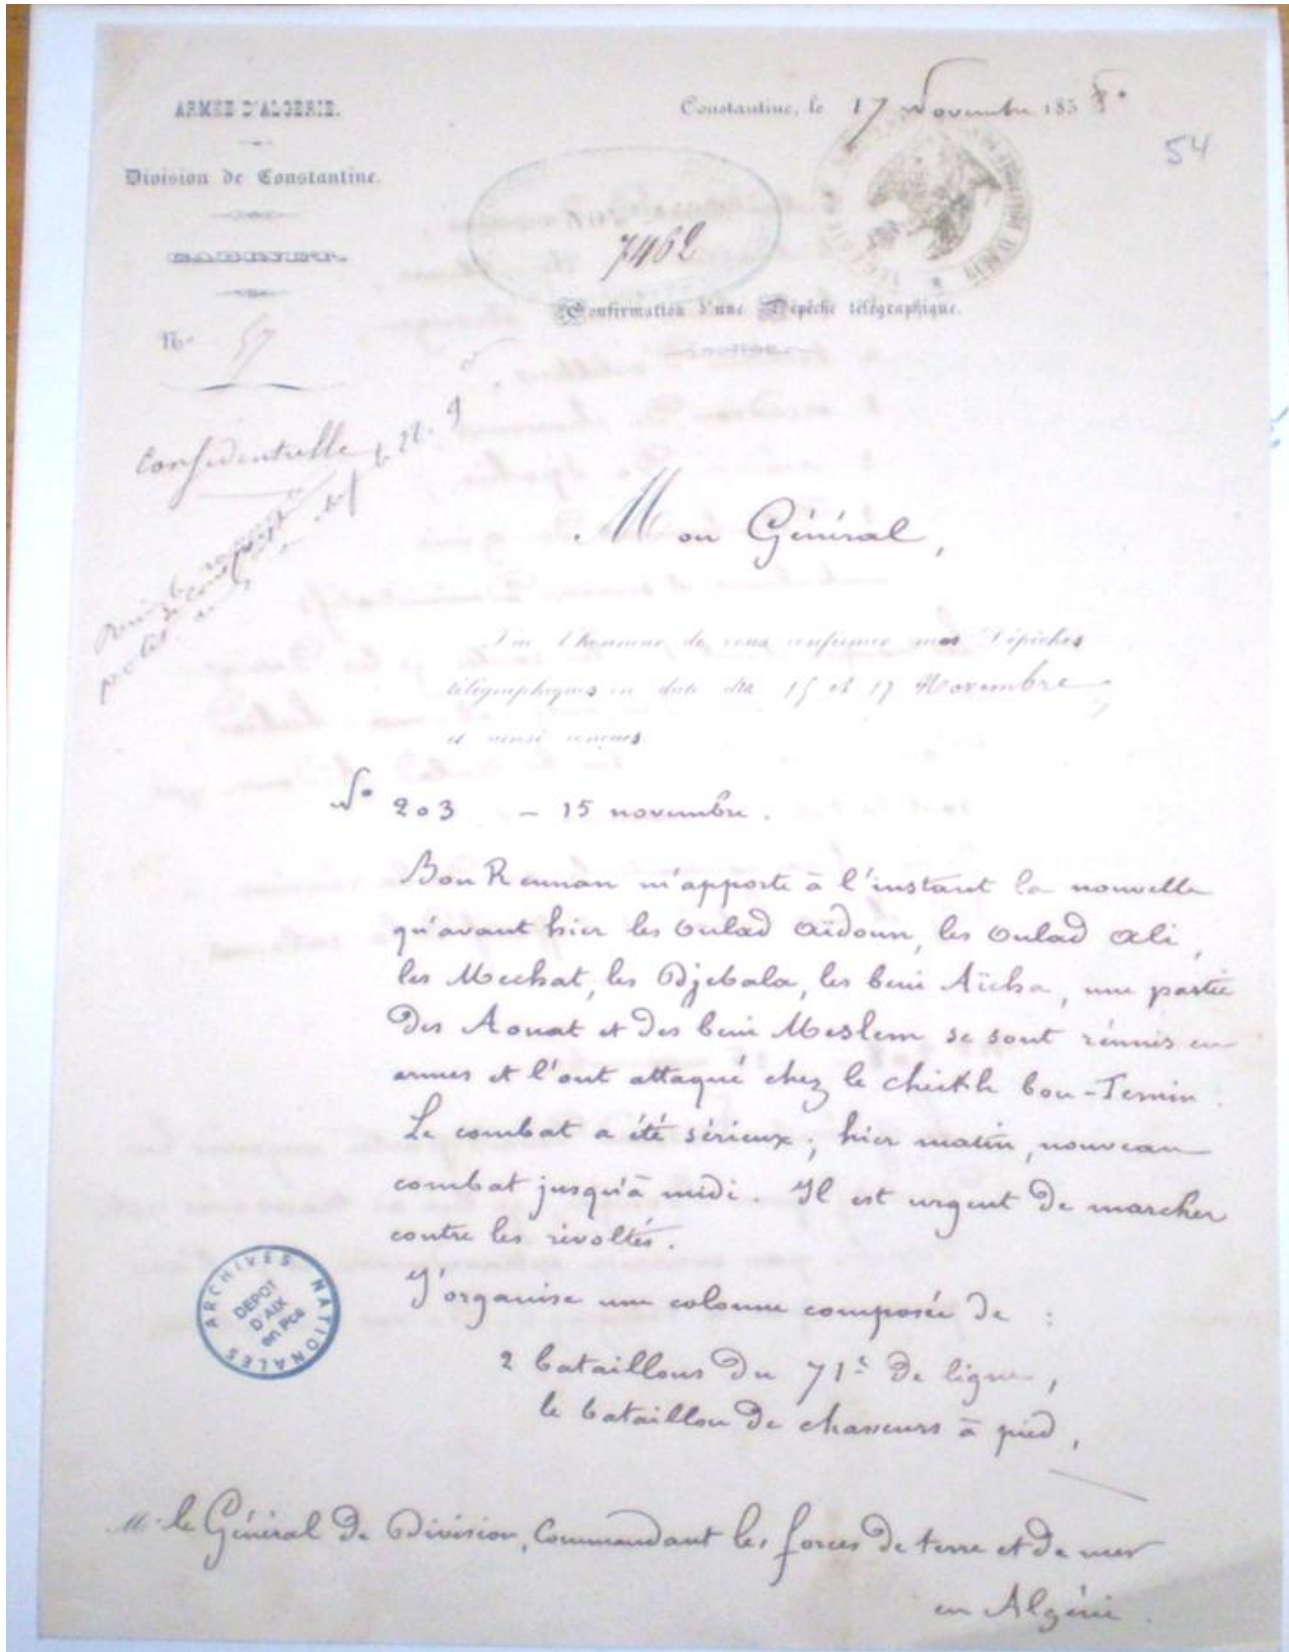 ARMÉE D'ALGÉRIE.
Division de Constantine.
CABINET.
No 57
Constantine, le 17 Novembre 185
54
7462
Confirmation d'une Dépêche télégraphique.
Confidentielle
Mon Général,
J'ai l'honneur de vous confirmer mes Dépêches
télégraphiques en date des 15 et 17 Novembre
et ainsi conçues
No 203 – 15 novembre.
Bou Rennan m'apporte à l'instant la nouvelle
qu'avant hier les Oulad Aïdoun, les Oulad Ali,
les Mechat, les Djebala, les beni Aïcha, une partie
des Aouat et des beni Meslem se sont réunis en
armes et l'ont attaqué chez le cheikh bou-Temin.
Le combat a été sérieux; hier matin, nouveau
combat jusqu'à midi. Il est urgent de marcher
contre les révoltés.
J'organise une colonne composée de :
2 bataillons du 71e de ligne,
le bataillon de chasseurs à pied,
ARCHIVES NATIONALES
DÉPOT
D'AIX
en Pce
Mr le Général de Division, Commandant les forces de terre et de mer
en Algérie.